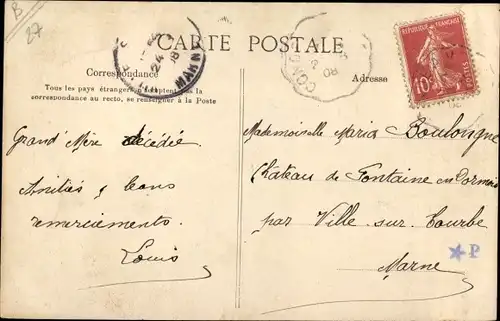 B
27
CARTE POSTALE
Correspondance
Tous les pays étrangers n'acceptent pas la
correspondance au recto, se renseigner à la Poste
Grand'Mère décédée
Amitiés & bons
remerciements.
Louis
MARNE
REPUBLIQUE FRANÇAISE
10c
POSTES
Adresse
Mademoiselle Maria Boulonque
Château de Fontaine en Dormois
par Ville sur Tourbe
Marne
P